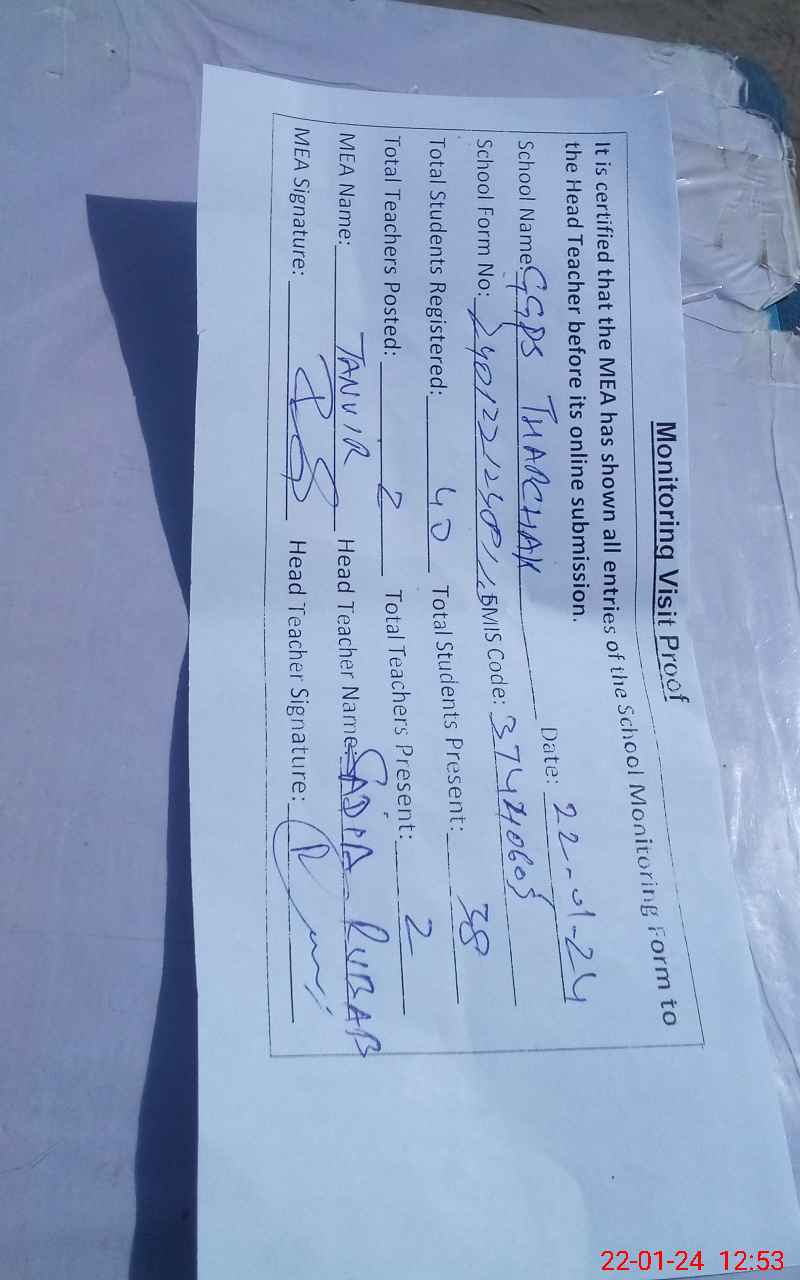 Monitoring Visit Proof
It is certified that the MEA has shown all entries of the School Monitoring Form to
the Head Teacher before its online submission.
School Name: GGPS THARCHAK Date: 22-01-24
School Form No: EMIS Code: 37440605
Total Students Registered: 40 Total Students Present: 38
Total Teachers Posted: 2 Total Teachers Present: 2
MEA Name: TANVIR Head Teacher Name: SADIA RUBAB
MEA Signature: Head Teacher Signature:
22-01-24 12:53